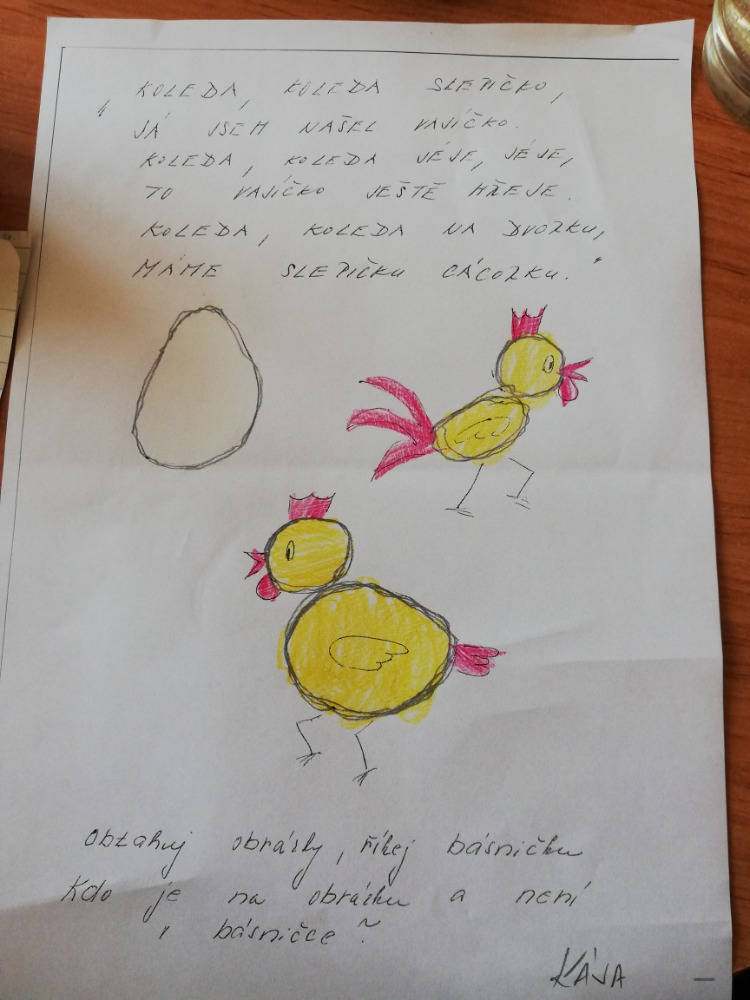 „KOLEDA, KOLEDA SLEPIČKO,
JÁ JSEM NAŠEL VAJÍČKO.
KOLEDA, KOLEDA JÉJE, JÉJE,
TO VAJÍČKO JEŠTĚ HŘEJE.
KOLEDA, KOLEDA NA DVORKU,
MÁME SLEPIČKU CÁCORKU."
Obtahuj obrázky, říkej básničku
Kdo je na obrázku a není
v básničce?
KÁJA